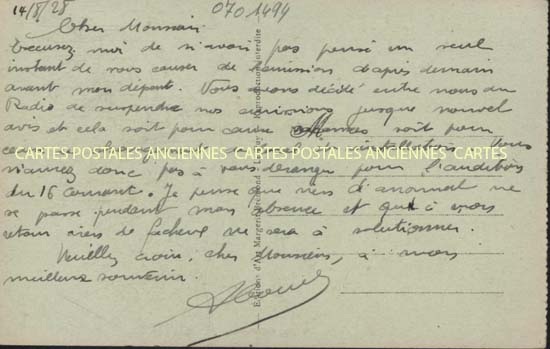 14/8/28
0701494
Cher Monsieur
Excusez moi de n'avoir pas pensé un seul
instant de vous causer de l'émission d'après demain
avant mon départ. Nous avons décidé entre nous du
Radio de suspendre nos émissions jusque nouvel
avis et cela soit pour cause soit pour
CARTES POSTALES ANCIENNES CARTES POSTALES ANCIENNES CARTES
n'aurez donc pas à vous déranger pour l'audition
du 16 courant. Je pense que rien d'anormal ne
se passe pendant mon absence et qu'à mon
retour rien de fâcheux ne sera à solutionner.
Veuillez croire, cher Monsieur, à mon
meilleur souvenir.
Editions d'Art Margerie
Reproduction interdite